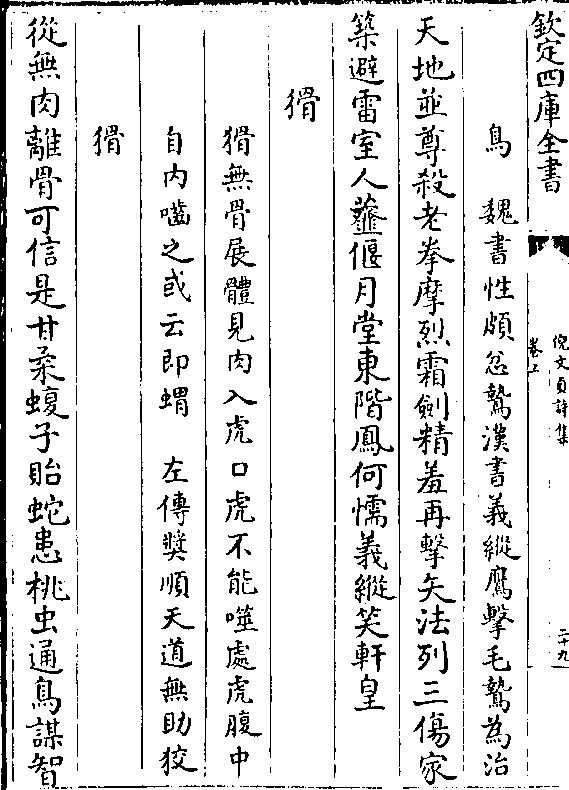 欽定四庫全書
倪文貞詩集
卷上
二十九
鳥　魏書性頗忿鷙漢書義縱鷹擊毛鷙為治
天地並尊殺老拳摩烈霜劍精羞再擊矢法列三傷家
築避雷室人虀偃月堂東階鳳何懦義縱笑軒皇
猾
猾無骨展體見肉入虎口虎不能噬處虎腹中
自内嚙之或云即蝟　左傳奬順天道無助狡
猾
從無肉離骨可信是甘柔蝮子貽蛇患桃虫通鳥謀智